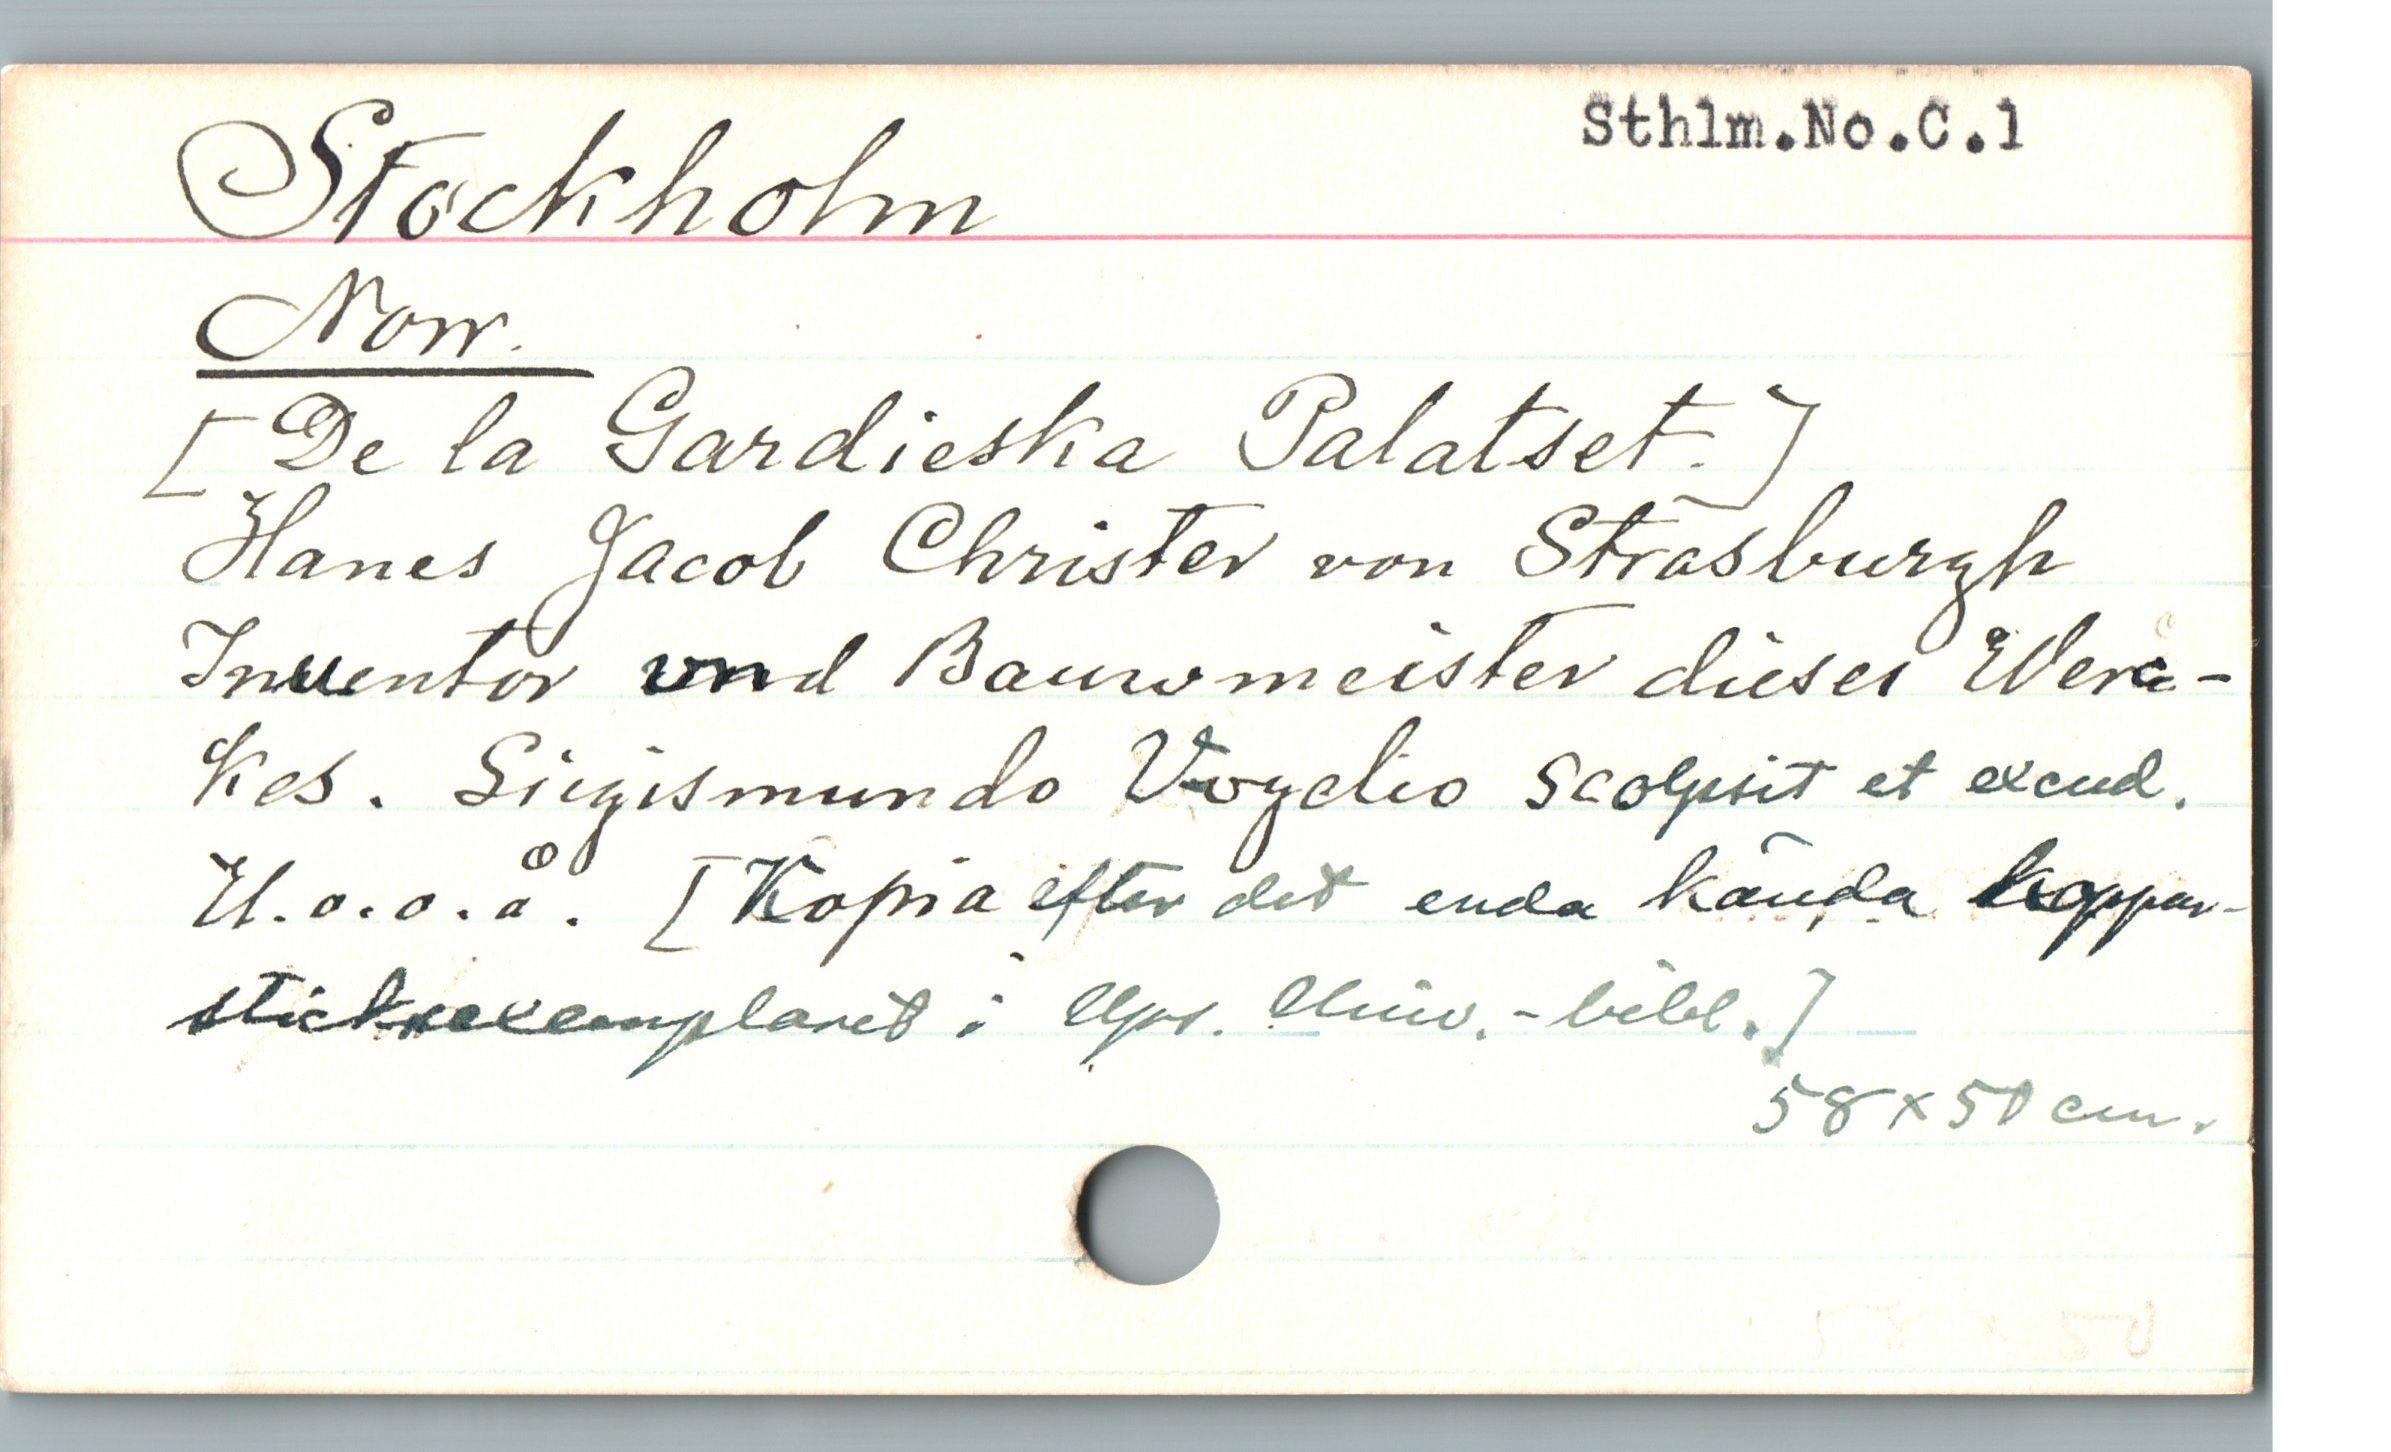 Sthlm.No.C.1
Stockholm
Norr.
[De la Gardieska Palatset.]
Hanes Jacob Christer von Strasburgh
Inventor und Bauwmeister dieses Werc-
kes. Siegismundo Vogelio scolpsit et excud.
U.o.o.å. [Kopia efter det enda kända koppar-
sticksexemplaret i Ups. Univ.-bibl.]
58 x 50 cm.